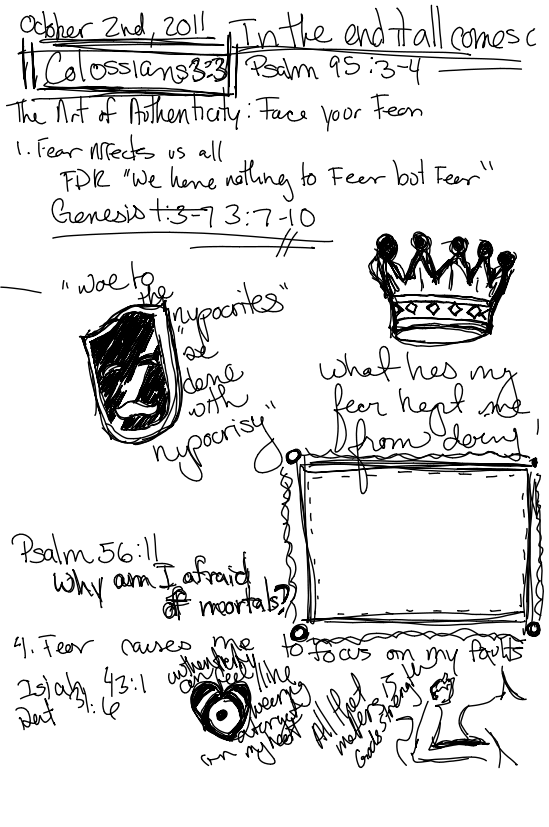 October 2nd, 2011
In the end it all comes
Colossians 3:3
Psalm 95:3-4
The Art of Authenticity: Face your Fear
1. Fear Affects us all
FDR "We have nothing to Fear but Fear"
Genesis 1:3-7 3:7-10
"woe to
the
hypocrites"
"be
done
with
hypocrisy"
what has my
fear kept me
from doing
Psalm 56:11
Why am I afraid
of mortals?
4. Fear causes me to focus on my faults
Isiah 43:1
Deut 31:6
authenticity
can feel like
wearing
a target
on my heart
All that
matters is
Gods strength